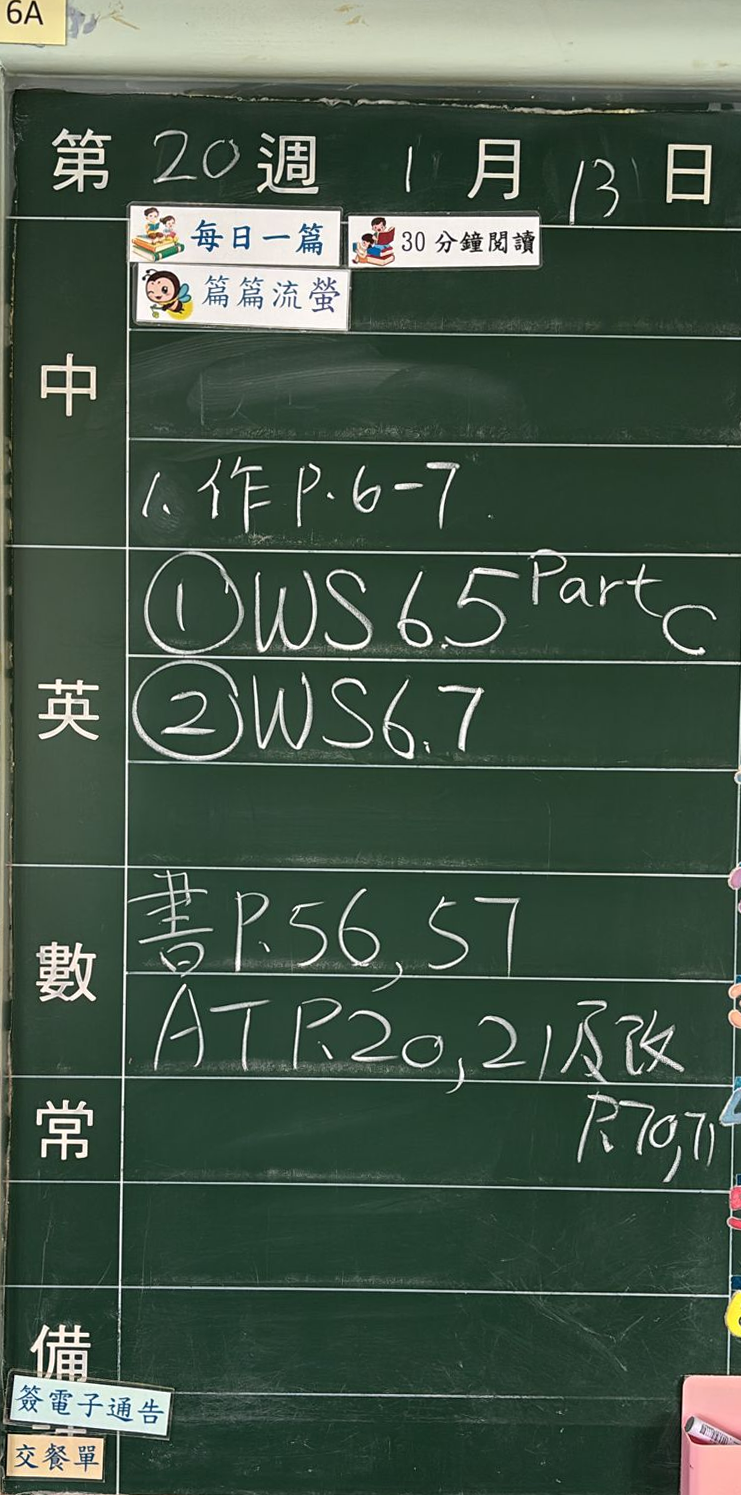 6A
第 20 週 1 月 13 日
每日一篇 30分鐘閱讀
篇篇流螢
中
1. 作 P.6-7
英
① WS 6.5 Part C
② WS 6.7
數
書 P.56, 57
AT P.20, 21 及改
P.70, 71
常
備
簽電子通告
交餐單